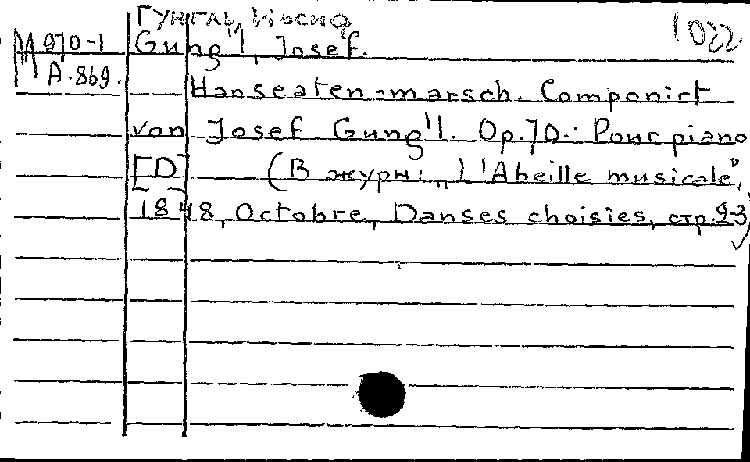 Гунгль, Иосиф
1022
М 970-1
А.869.
Gung'l, Josef.
Hanseaten-marsch. Componirt
von Josef Gung'l. Op.70. Pour piano
[D] (В журн: „L'Abeille musicale",
1848, Octobre, Danses choisies, стр. 2-3)